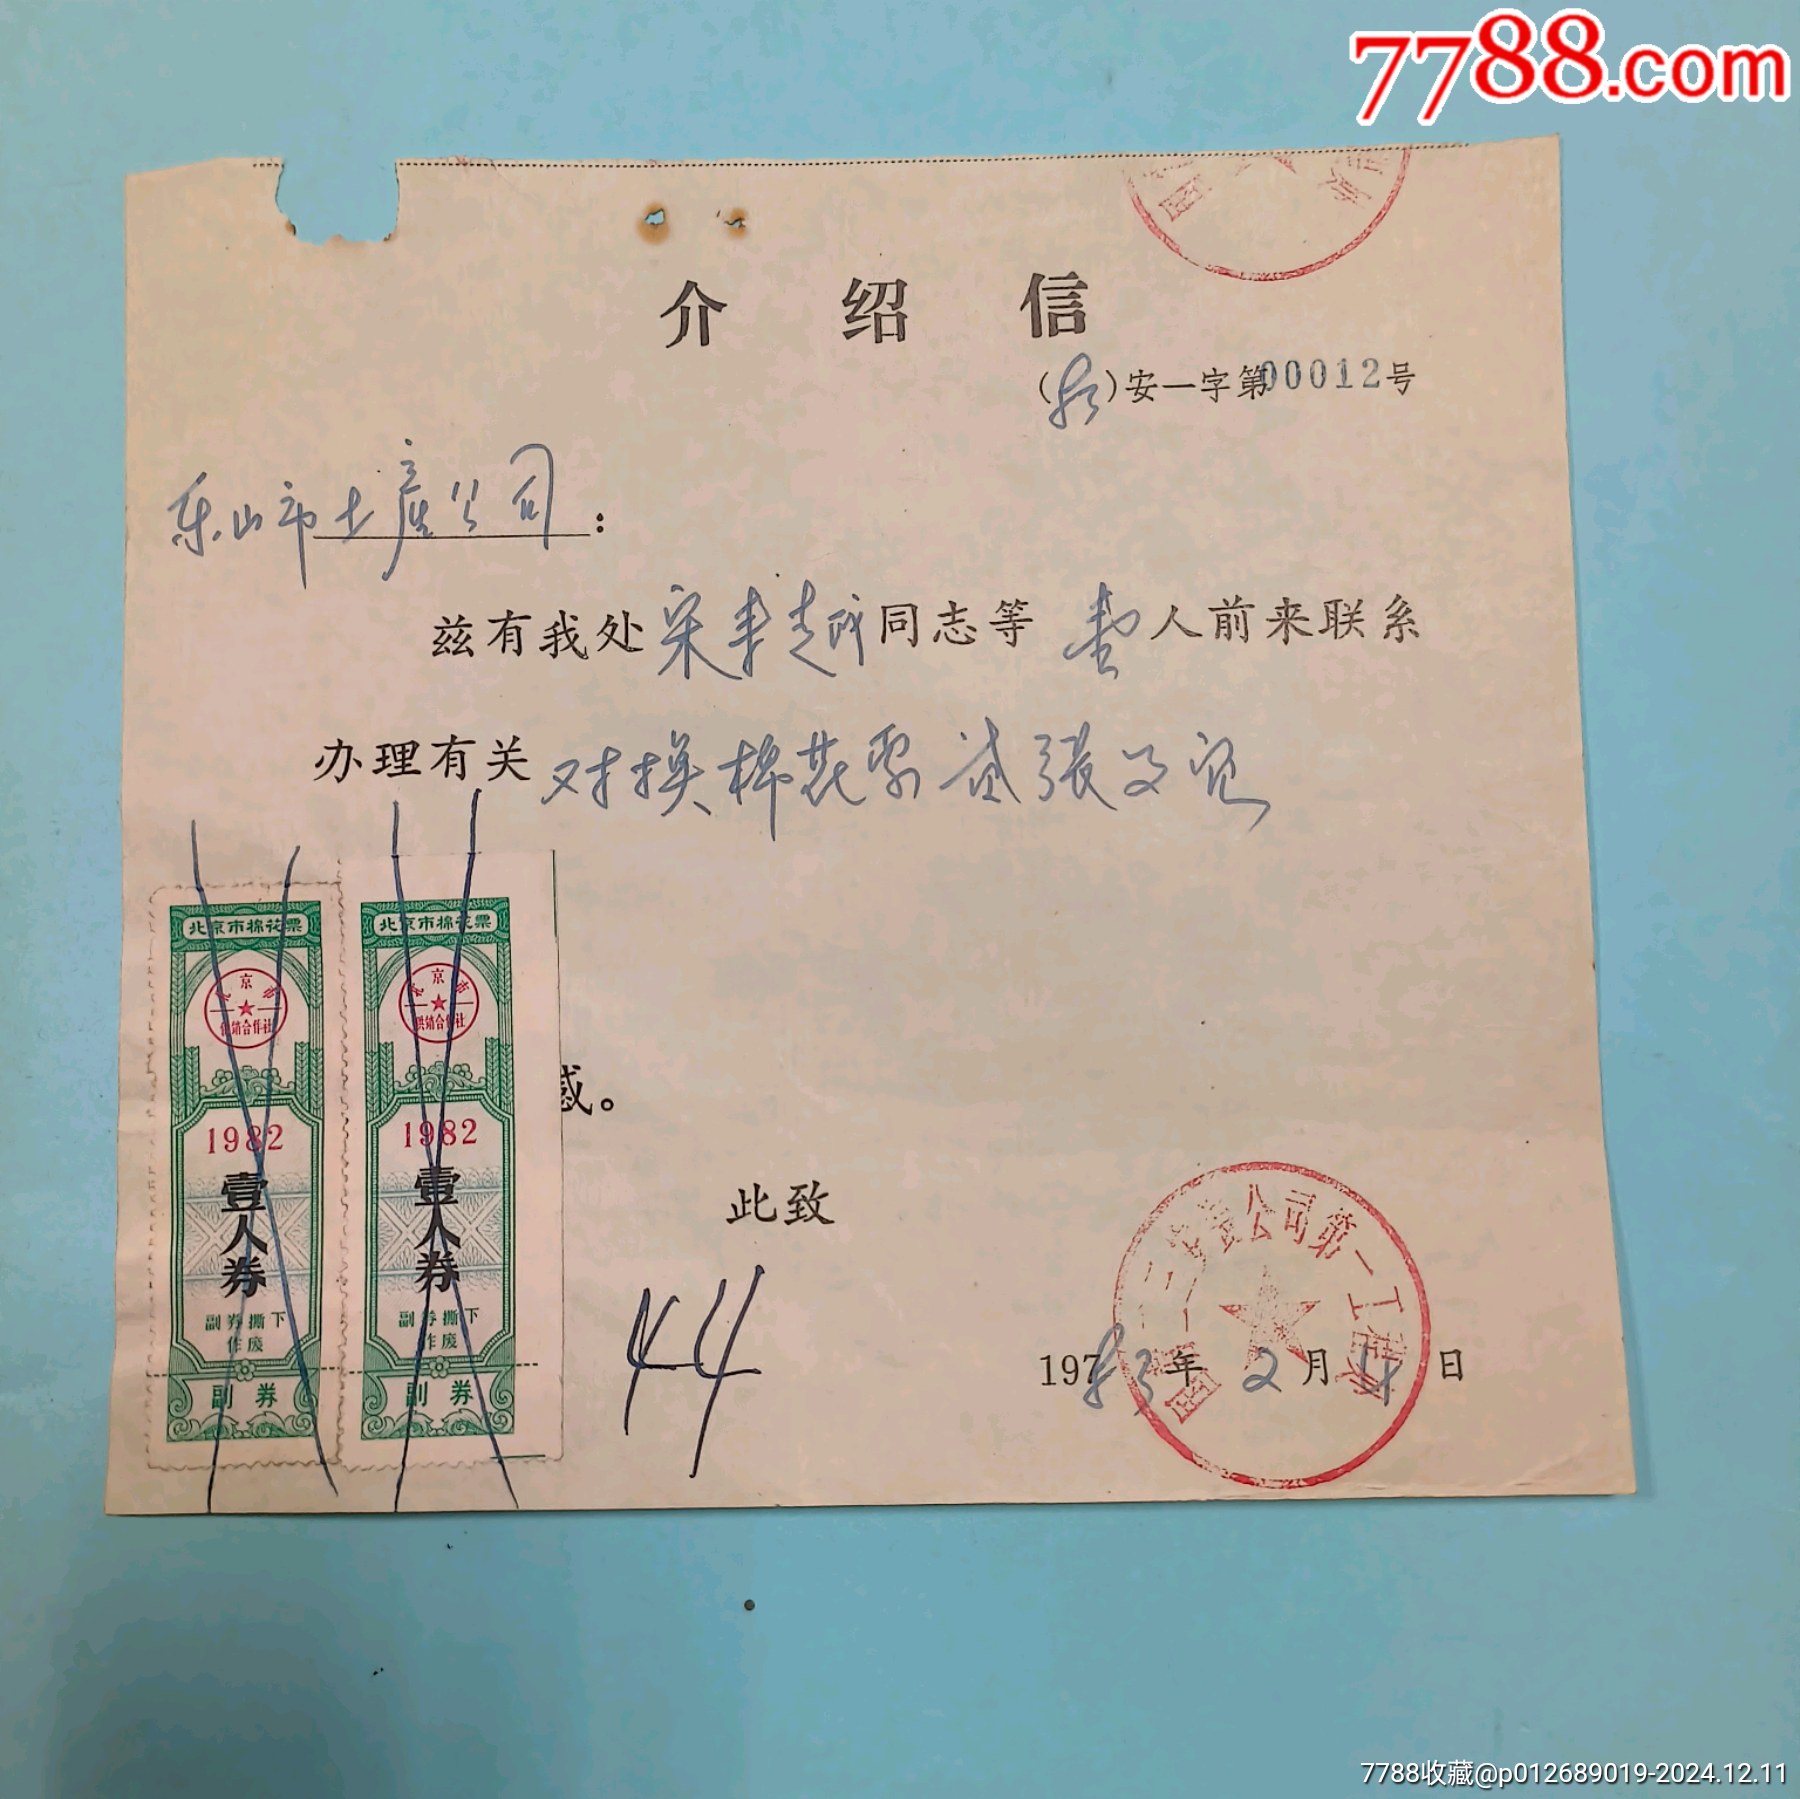 7788.com
介绍信
(83)安一字第00012号
乐山市土产公司:
兹有我处宋丰越同志等壹人前来联系
办理有关对换棉花票贰张事宜
感。
北京市棉花票
北京市
供销合作社
1982
壹人券
副券撕下
作废
副券
北京市棉花票
北京市
供销合作社
1982
壹人券
副券撕下
作废
副券
此致
44
公司第一工程
1983年2月4日
7788收藏@p012689019-2024.12.11